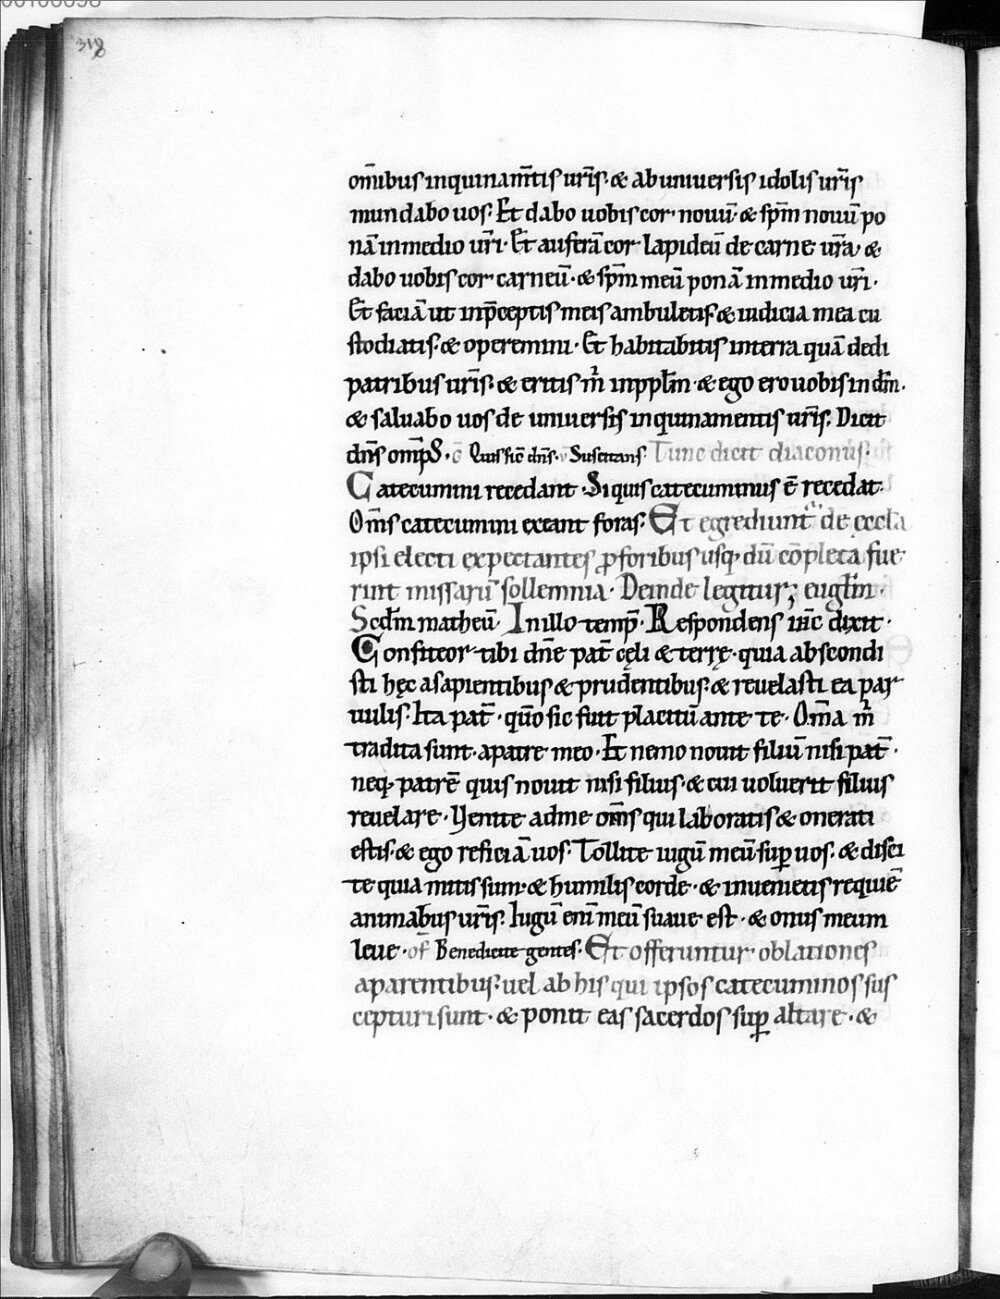 318
om̄ibus inquinam̄tis ur̄is· & ab uniuersis idolis ur̄is
mundabo uos· Et dabo uobis cor nouū· & sp̄m nouū po
nā in medio ur̄i· Et auferā cor lapideū de carne ur̄a· &
dabo uobis cor carneū· & sp̄m meū ponā in medio ur̄i·
Et faciā ut in p̄ceptis meis ambuletis· & iudicia mea cu
stodiatis· & operemini· Et habitabitis in terra quā dedi
patribus ur̄is· & eritis m̉ in ppl̄m· & ego ero uobis in dm̄·
& saluabo uos de uniuersis inquinamentis ur̄is· Dicit
dn̄s omp̄s· Quis sic̄ dn̄s· Suscitans· Tunc dicit diaconus·
Catecumini recedant· Si quis catecuminus ē recedat·
Om̄s catecumini exeant foras· Et egrediunt̉ de eccla
ipsi electi expectantes ꝓ foribus usq; dū cōpleta fue
rint missarū sollemnia· Deinde legitur; euglm̄·
Scdm̄ matheū· In illo temp̄· Respondens ih̄c dixit·
Confiteor tibi dn̄e pat̄ cęli & terrę· quia abscondi
sti hęc a sapientibus & prudentibus· & reuelasti ea par
uulis· Ita pat̄· qūo sic fuit placitū ante te· Om̄a m̉
tradita sunt· a patre meo· Et nemo nouit filiū nisi pat̄·
neq; patrē quis nouit nisi filius· & cui uoluerit filius
reuelare· Uenite ad me om̄s qui laboratis & onerati
estis· & ego reficiā uos· Tollite iugū meū sup̱ uos· & disci
te quia mitis sum· & humilis corde· & inuenietis requiē
animabus ur̄is· Iugū enī meū suaue est· & onus meum
leue· of̄ Benedicite gentes· Et offeruntur oblationes
a parentibus· uel ab his qui ipsos catecuminos sus
cepturi sunt· & ponit eas sacerdos sup̱ altare· &